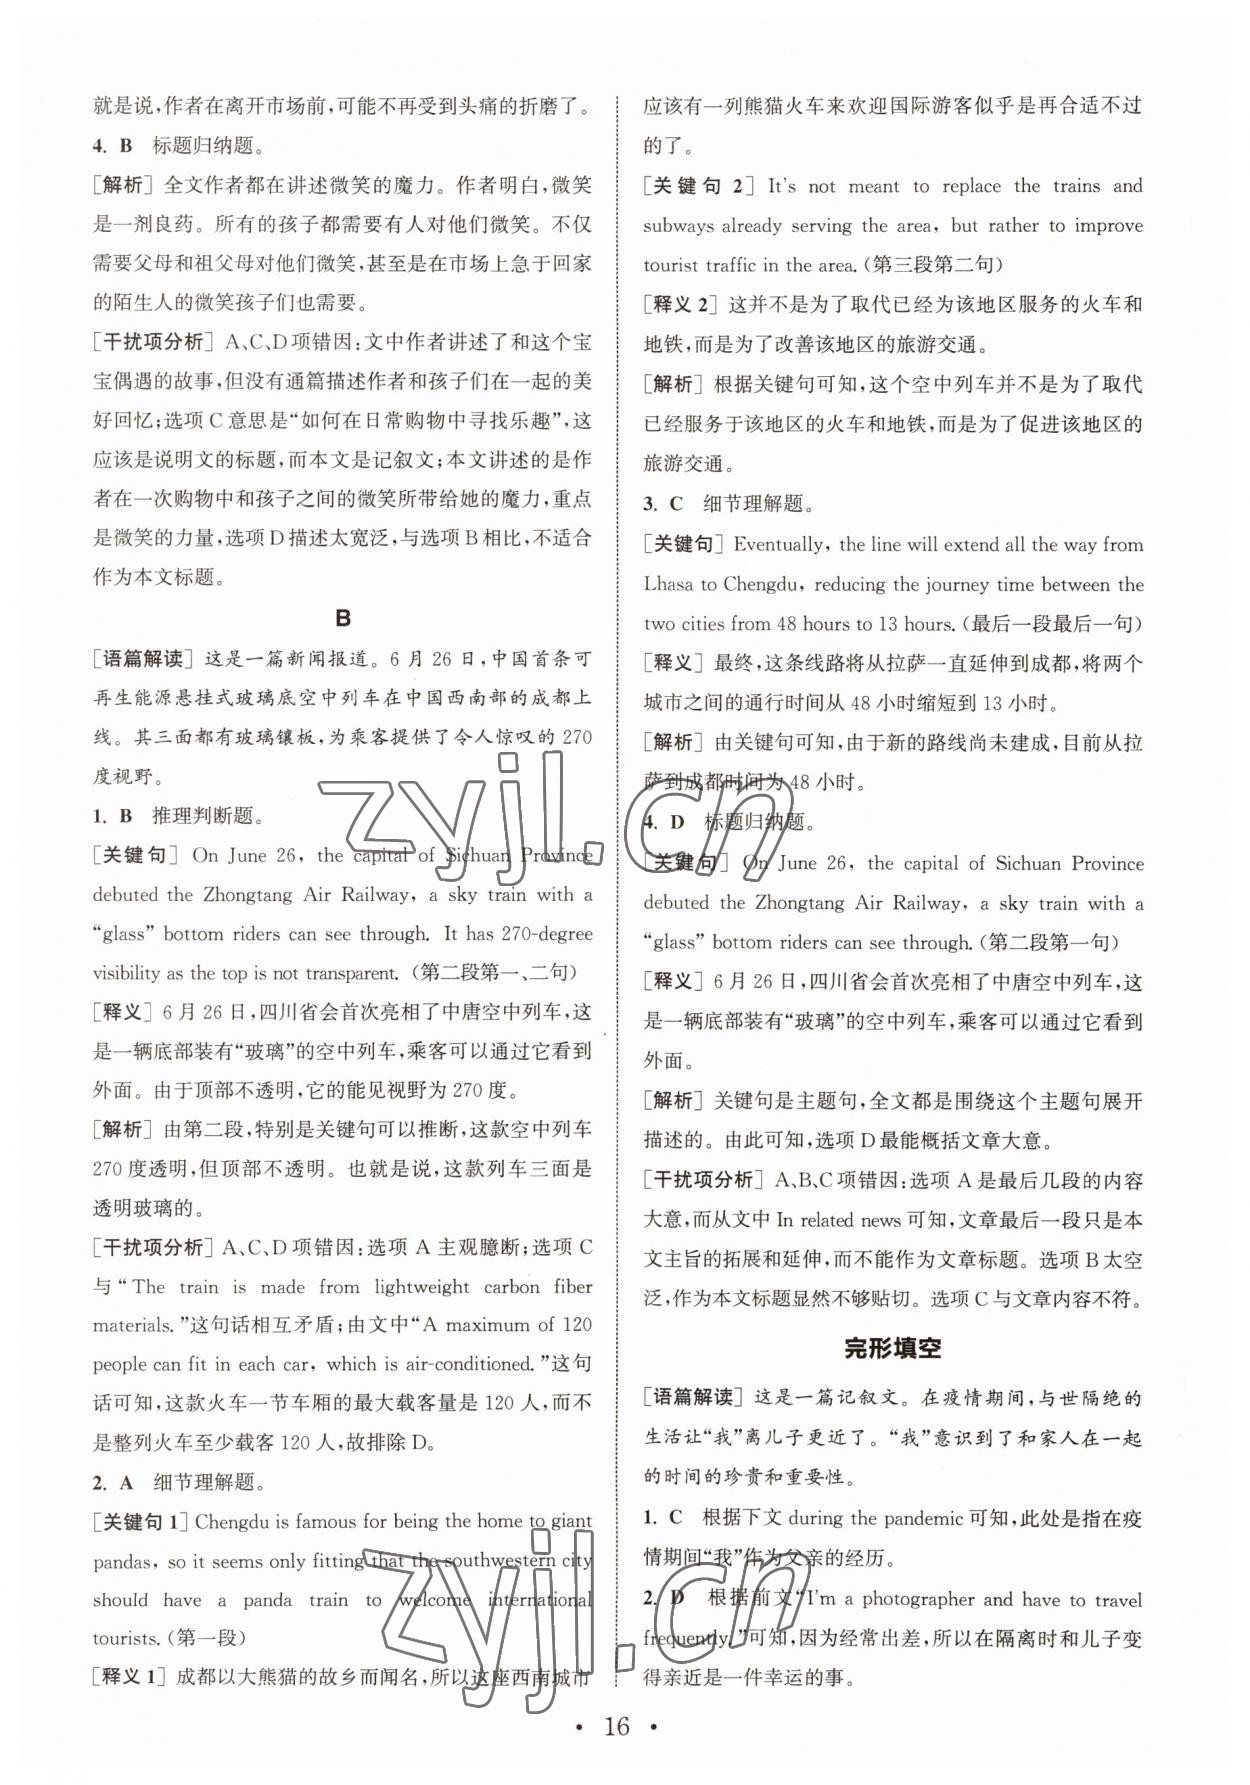 就是说,作者在离开市场前,可能不再受到头痛的折磨了。
4. B 标题归纳题。
[解析] 全文作者都在讲述微笑的魔力。作者明白,微笑
是一剂良药。所有的孩子都需要有人对他们微笑。不仅
需要父母和祖父母对他们微笑,甚至是在市场上急于回家
的陌生人的微笑孩子们也需要。
[干扰项分析] A、C、D项错因:文中作者讲述了和这个宝
宝偶遇的故事,但没有通篇描述作者和孩子们在一起的美
好回忆;选项C意思是“如何在日常购物中寻找乐趣”,这
应该是说明文的标题,而本文是记叙文;本文讲述的是作
者在一次购物中和孩子之间的微笑所带给她的魔力,重点
是微笑的力量,选项D描述太宽泛,与选项B相比,不适合
作为本文标题。
B
[语篇解读] 这是一篇新闻报道。6月26日,中国首条可
再生能源悬挂式玻璃底空中列车在中国西南部的成都上
线。其三面都有玻璃镶板,为乘客提供了令人惊叹的270
度视野。
1. B 推理判断题。
[关键句] On June 26, the capital of Sichuan Province
debuted the Zhongtang Air Railway, a sky train with a
“glass” bottom riders can see through. It has 270-degree
visibility as the top is not transparent.(第二段第一、二句)
[释义] 6月26日,四川省会首次亮相了中唐空中列车,这
是一辆底部装有“玻璃”的空中列车,乘客可以通过它看到
外面。由于顶部不透明,它的能见视野为270度。
[解析] 由第二段,特别是关键句可以推断,这款空中列车
270度透明,但顶部不透明。也就是说,这款列车三面是
透明玻璃的。
[干扰项分析] A、C、D项错因:选项A主观臆断;选项C
与“The train is made from lightweight carbon fiber
materials.”这句话相互矛盾;由文中“A maximum of 120
people can fit in each car, which is air-conditioned.”这句
话可知,这款火车一节车厢的最大载客量是120人,而不
是整列火车至少载客120人,故排除D。
2. A 细节理解题。
[关键句1] Chengdu is famous for being the home to giant
pandas, so it seems only fitting that the southwestern city
should have a panda train to welcome international
tourists.(第一段)
[释义1] 成都以大熊猫的故乡而闻名,所以这座西南城市
应该有一列熊猫火车来欢迎国际游客似乎是再合适不过
的了。
[关键句2] It's not meant to replace the trains and
subways already serving the area, but rather to improve
tourist traffic in the area.(第三段第二句)
[释义2] 这并不是为了取代已经为该地区服务的火车和
地铁,而是为了改善该地区的旅游交通。
[解析] 根据关键句可知,这个空中列车并不是为了取代
已经服务于该地区的火车和地铁,而是为了促进该地区的
旅游交通。
3. C 细节理解题。
[关键句] Eventually, the line will extend all the way from
Lhasa to Chengdu, reducing the journey time between the
two cities from 48 hours to 13 hours.(最后一段最后一句)
[释义] 最终,这条线路将从拉萨一直延伸到成都,将两个
城市之间的通行时间从48小时缩短到13小时。
[解析] 由关键句可知,由于新的路线尚未建成,目前从拉
萨到成都时间为48小时。
4. D 标题归纳题。
[关键句] On June 26, the capital of Sichuan Province
debuted the Zhongtang Air Railway, a sky train with a
“glass” bottom riders can see through.(第二段第一句)
[释义] 6月26日,四川省会首次亮相了中唐空中列车,这
是一辆底部装有“玻璃”的空中列车,乘客可以通过它看到
外面。
[解析] 关键句是主题句,全文都是围绕这个主题句展开
描述的。由此可知,选项D最能概括文章大意。
[干扰项分析] A、B、C项错因:选项A是最后几段的内容
大意,而从文中In related news可知,文章最后一段只是本
文主旨的拓展和延伸,而不能作为文章标题。选项B太空
泛,作为本文标题显然不够贴切。选项C与文章内容不符。
完形填空
[语篇解读] 这是一篇记叙文。在疫情期间,与世隔绝的
生活让“我”离儿子更近了。“我”意识到了和家人在一起
的时间的珍贵和重要性。
1. C 根据下文during the pandemic可知,此处是指在疫
情期间“我”作为父亲的经历。
2. D 根据前文“I'm a photographer and have to travel
frequently.”可知,因为经常出差,所以在隔离时和儿子变
得亲近是一件幸运的事。
• 16 •
zyjl.cn
zyjl.cn